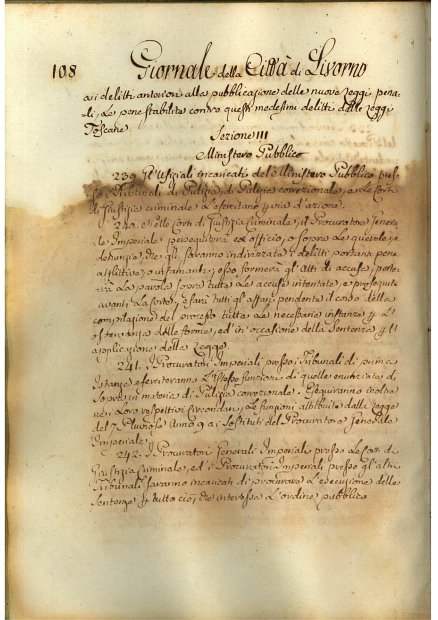 108 Giornale della Città di Livorno
ai delitti anteriori alla pubblicazione delle nuove Leggi pena-
li, Le pene stabilite contro questi medesimi delitti dalle Leggi
Toscane.
Sezione III
Ministero Pubblico
239. Gl'Ufiziali incaricati del Ministero Pubblico pres-
so i Tribunali di Polizia, di Polizia correzionale, e Le Corti
di Giustizia criminale L'esercitano per via d'azione.
240. Nelle Corti di Giustizia Criminale, il Procuratore Genera-
le Imperiale perseguiterà ex officio, o sopra Le querele, e
denunzie, che gli saranno indirizzate i delitti portanti pena
afflittiva, o infamante; esso formerà gl'Atti di accusa; porte-
rà La parola sopra tutte Le accuse intentate, e proseguite
avanti La Corte, e farà tutti gli affari pendente il corso della
compilazione del processo tutte Le necessarie instanze per L'
osservanza delle forme, ed in occasione della Sentenza per L'
applicazione della Legge.
241. I Procuratori Imperiali presso i Tribunali di prima
Istanza eserciteranno L'istesse funzioni di quelle enunziate di
Sopra in materia di Polizia correzionale. Eseguiranno inoltre
nei Loro respettivi Circondarj Le funzioni attribuite dalla Legge
del 7 Piovoso Anno 9 ai Sostituti del Procuratore Generale
Imperiale.
242. I Procuratori Generali Imperiali presso Le Corti di
Giustizia Criminale, ed i Procuratori Imperiali presso gl'altri
Tribunali saranno incaricati di procurare L'esecuzione delle
Sentenze per tutto ciò, che interessa L'ordine pubblico.